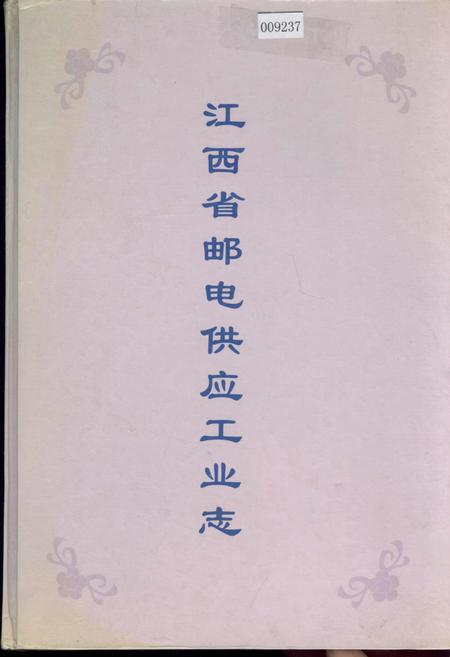 009237
江西省邮电供应工业志